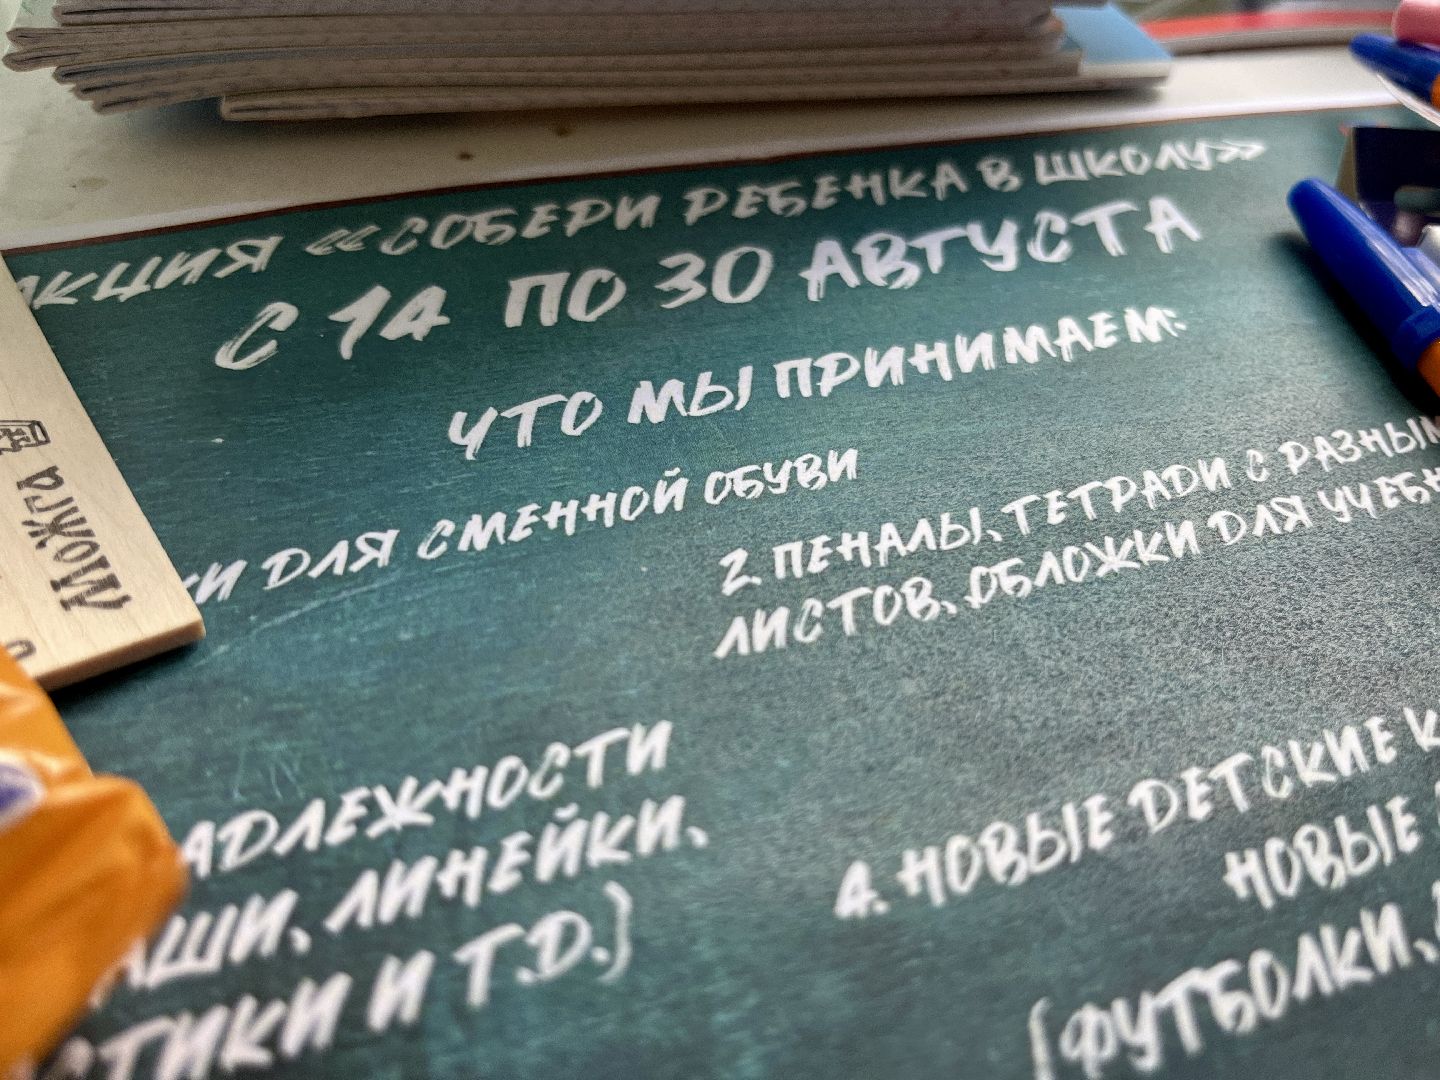 АКЦИЯ «СОБЕРИ РЕБЕНКА В ШКОЛУ»
С 14 ПО 30 АВГУСТА
ЧТО МЫ ПРИНИМАЕМ:
ДЛЯ СМЕННОЙ ОБУВИ
2. ПЕНАЛЫ, ТЕТРАДИ С РАЗНЫМ
ЛИСТОВ, ОБЛОЖКИ ДЛЯ УЧЕБН
АДЛЕЖНОСТИ
АШИ, ЛИНЕЙКИ,
СТИКИ И Т.Д.)
4. НОВЫЕ ДЕТСКИЕ К
НОВЫЕ
(ФУТБОЛКИ,
Можга